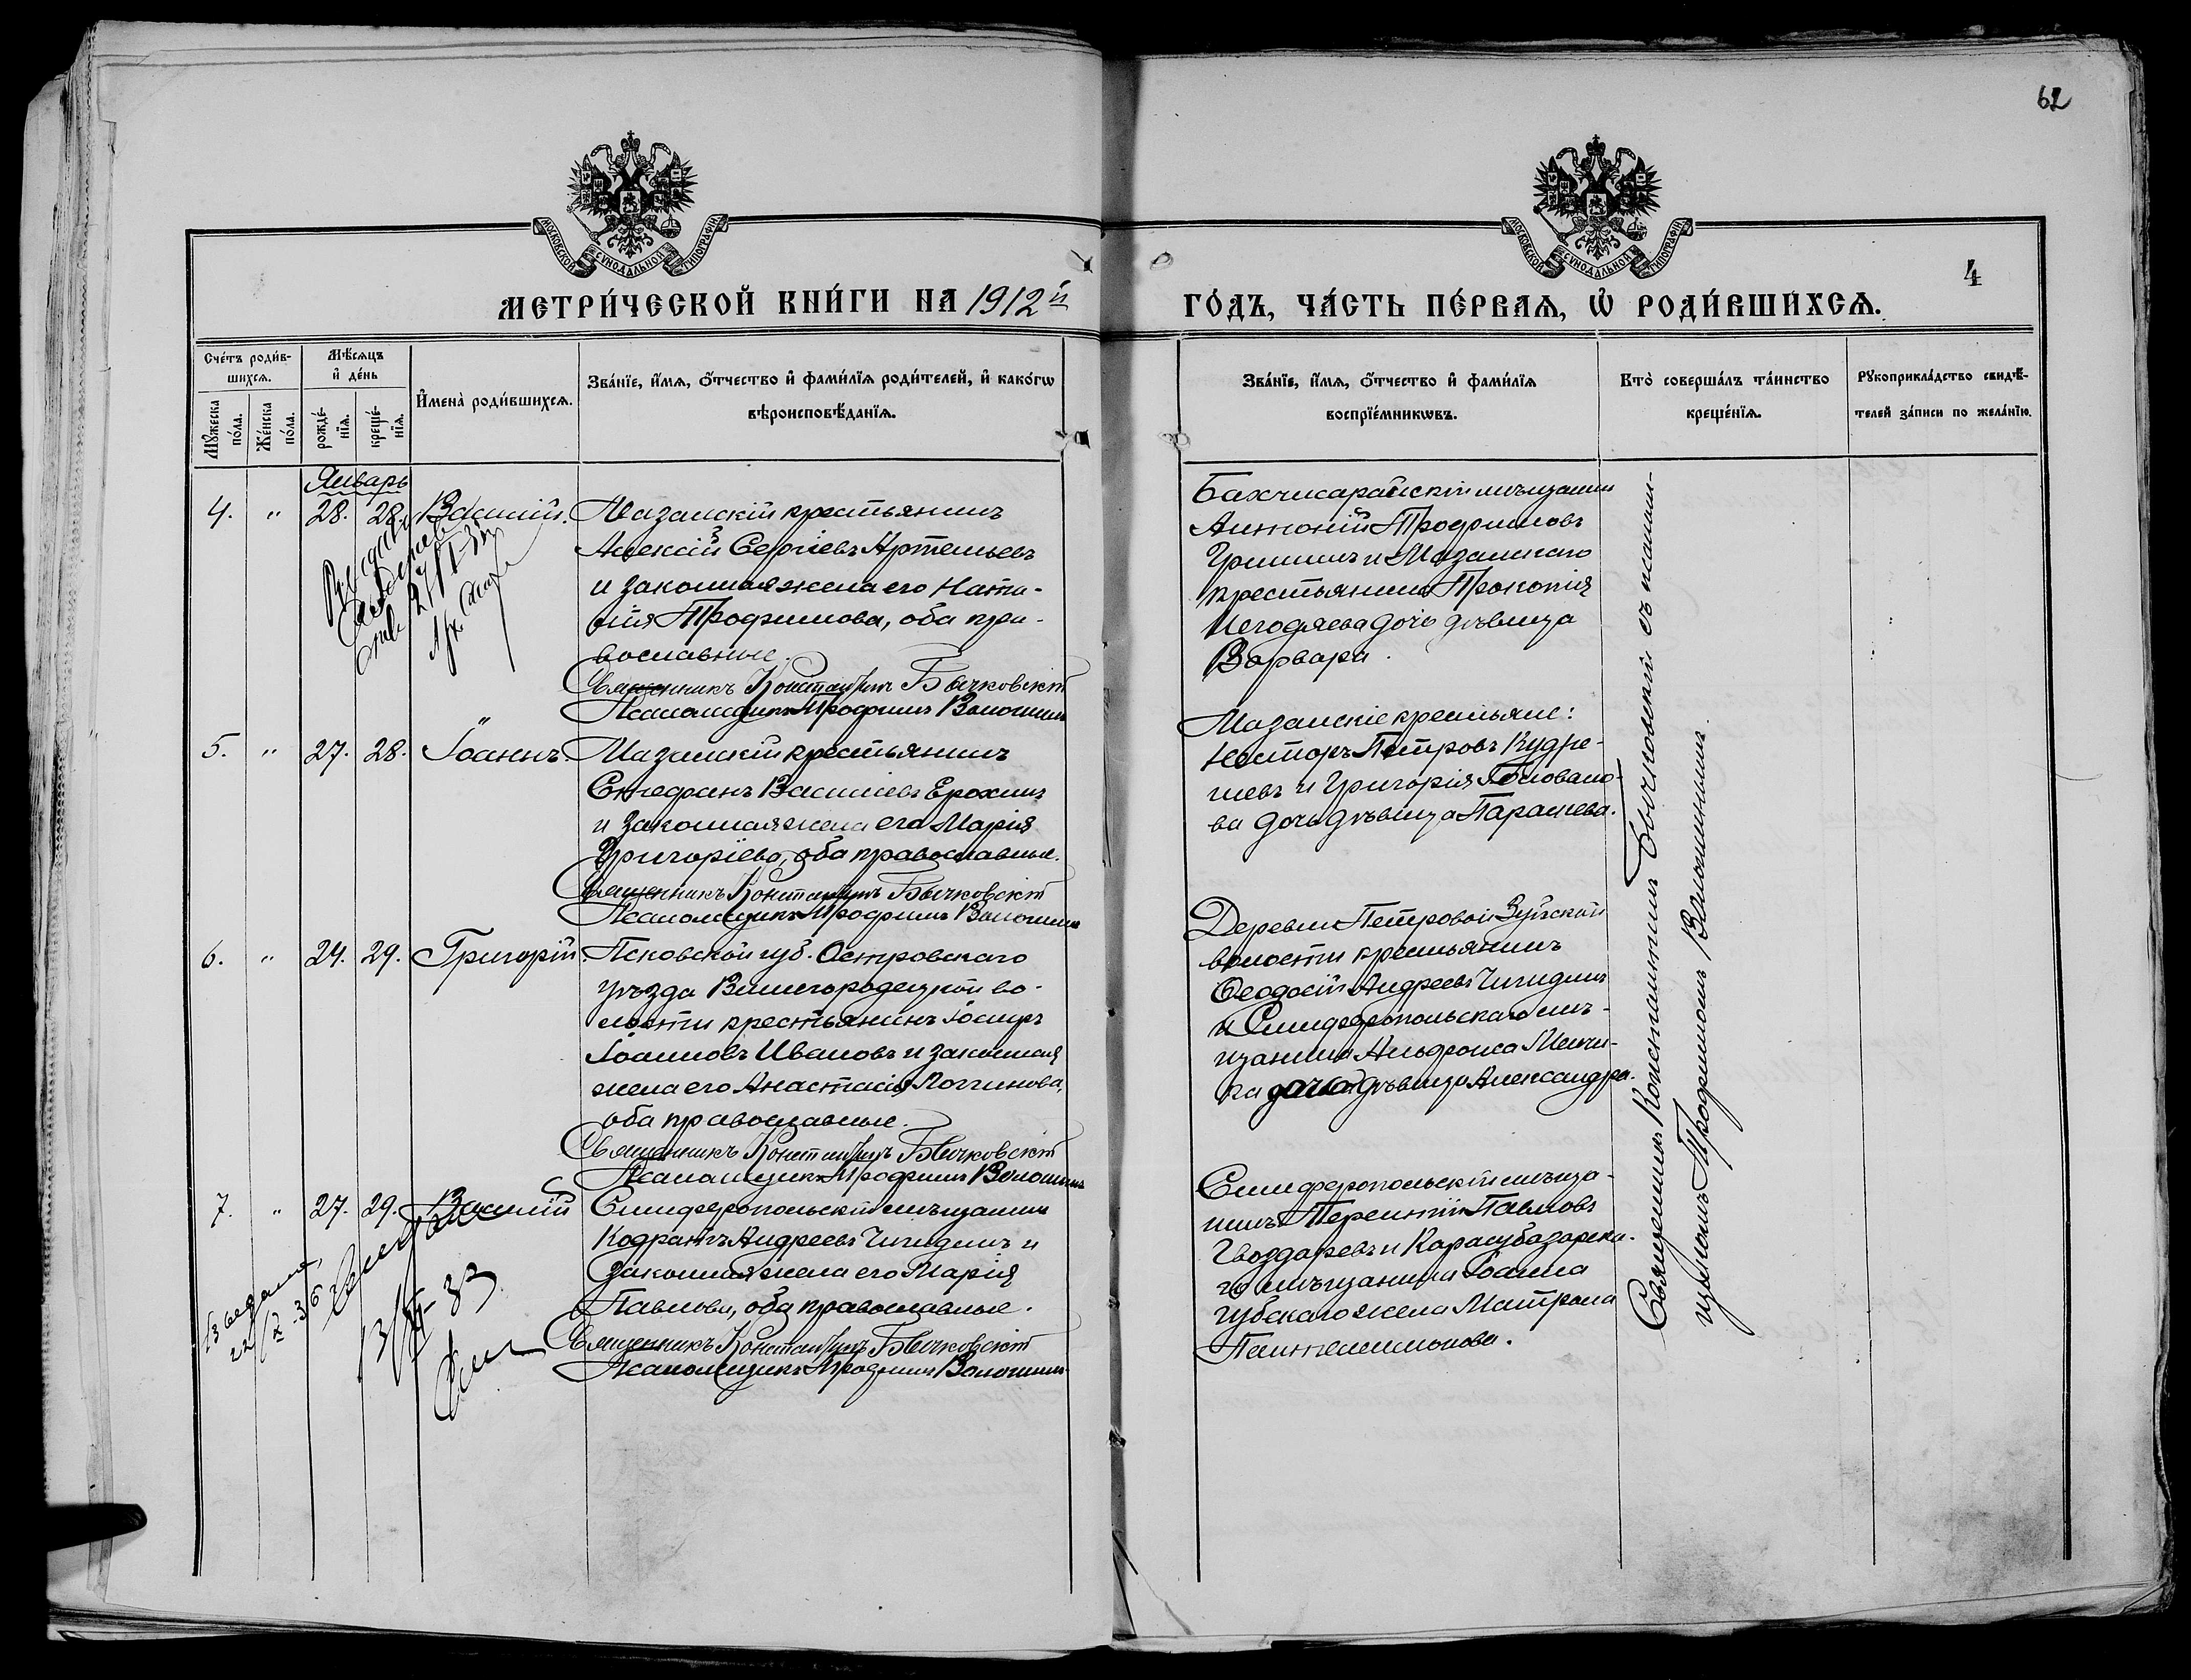 62
МОСКОВСКОЙ СѴНОДАЛЬНОЙ ТИПОГРАФІИ
МОСКОВСКОЙ СѴНОДАЛЬНОЙ ТИПОГРАФІИ
4
МЕТРИ́ЧЕСКОЙ КНИ́ГИ НА 1912й
ГО́ДЪ, ЧА́СТЬ ПЕ́РВАѦ, Ѡ҆ РОДИ́ВШИХСѦ.
Сче́тъ роди́в-
шихсѧ.
Мѣ́сѧцъ
и҆ де́нь
Мꙋ́жеска
по́ла.
Же́нска
по́ла.
рожде́-
нїѧ.
креще́-
нїѧ.
И҆мена̀ роди́вшихсѧ.
Зва́нїе, и҆́мѧ, ѻ҆́тчество и҆ фами́лїѧ роди́телей, и҆ како́гѡ
вѣроисповѣ́данїѧ.
Зва́нїе, и҆́мѧ, ѻ҆́тчество и҆ фами́лїѧ
воспрїе́мникѡвъ.
Кто̀ соверша́лъ та́инство
креще́нїѧ.
Рꙋкоприкла́дство свидѣ́-
телей за́писи по жела́нїю.
Январь
4. " 28. 28. Василій.
Мазанскій крестьянинъ
Алексій Сергіевъ Артемьевъ
и законная жена его Ната-
лія Трофимова, оба пра-
вославные.
Священникъ Константинъ Бычковскій
Псаломщикъ Трофимъ Волошинъ
Бахчисарайскій мѣщанинъ
Антоній Трофимовъ
Гришинъ и Мазанскаго
крестьянина Прокопія
Негодяева дочь дѣвица
Варвара.
5. " 27. 28. Іоаннъ.
Мазанскій крестьянинъ
Стефанъ Василіевъ Ерохинъ
и законная жена его Марія
Григоріева, оба православные.
Священникъ Константинъ Бычковскій
Псаломщикъ Трофимъ Волошинъ
Мазанскіе крестьяне:
Несторъ Петровъ Кудре-
шевъ и Григорія Головано-
ва дочь дѣвица Параскева.
6. " 24. 29. Григорій.
Псковской губ. Островскаго
уѣзда Вышегородецкой во-
лости крестьянинъ Іосифъ
Іоанновъ Ивановъ и законная
жена его Анастасія Логгинова,
оба православные.
Священникъ Константинъ Бычковскій
Псаломщикъ Трофимъ Волошинъ
Деревни Петровой Зуйской
волости крестьянинъ
Ѳеодосій Андреевъ Чигидинъ
и Симферопольскаго мѣ-
щанина Альфонса
дочь дѣвица Александра.
7. " 27. 29. Василій
Симферопольскій мѣщанинъ
Кодратъ Андреевъ Чигидинъ и
законная жена его Марія
Павлова, оба православные.
Священникъ Константинъ Бычковскій
Псаломщикъ Трофимъ Волошинъ
Симферопольскій мѣща-
нинъ Терентій Павловъ
Гвоздаревъ и Карасубазарска-
го мѣщанина Іоанна
Губскаго жена Матрона
Пантелеимонова.
Священникъ Константинъ Бычковскій съ псалом-
щикомъ Трофимомъ Волошинымъ.